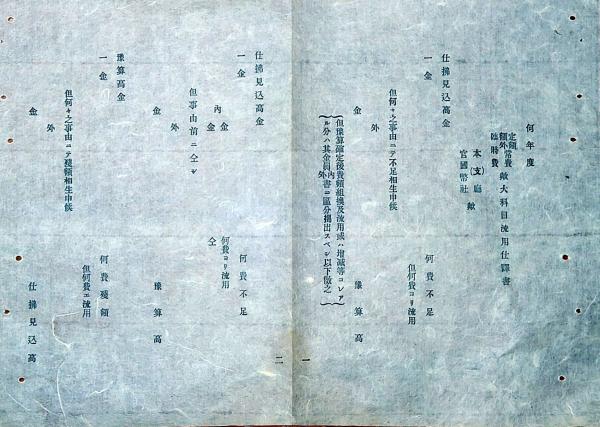 何年度
定額常費
額外常費 敝大科目流用仕譯書
臨時費
本(支)廳
官國幣社 敝
仕拂見込高金
一金 何費不足
但何々之事由ニテ不足相生申候 但何費ヨリ流用
外
金 豫算高
但豫算確定後費額組換及流用或ハ増減等コレア
ル分ハ其金員內外書ニ區分掲出スベシ以下傚之
一
仕拂見込高金
一金 何費不足
內金 何費ヨリ流用
金 仝
但事由前ニ仝シ
外
金 豫算高
豫算高金
一金 何費殘額
但何々之事由ニテ殘額相生申候 但何費エ流用
外
金 仕拂見込高
二